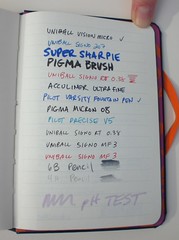 UNIBALL VISION MICRO ✓
UNIBALL SIGNO 207
SUPER SHARPIE
PIGMA BRUSH
UNIBALL SIGNO RT 0.38
ACCULINER ULTRA FINE
PILOT VARSITY FOUNTAIN PEN ✓
PIGMA MICRON 08
PILOT PRECISE V5
UNIBALL SIGNO RT 0.38
UNIBALL SIGNO MF 3
UNIBALL SIGNO MF 3
6B Pencil
Pencil
PH TEST